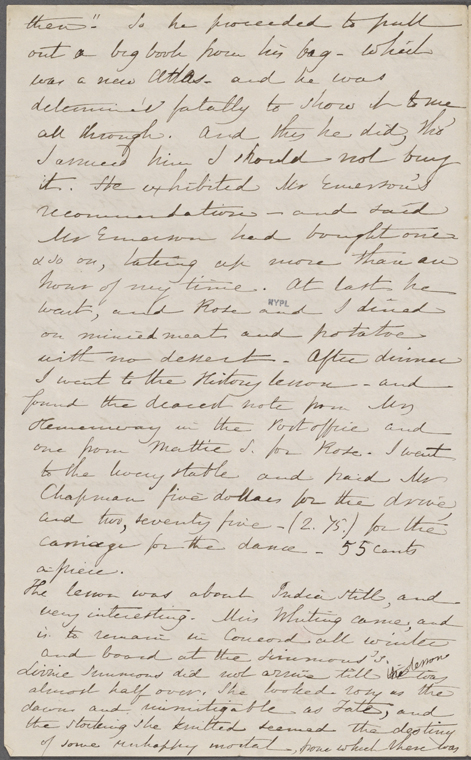 then". So he proceeded to pull
out a big book from his bag - which
was a new Atlas - and he was
determined fatally to show it to me
all through. And this he did, tho'
I assured him I should not buy
it. He exhibited Mr Emerson's
recommendation - and said
Mr Emerson had bought one
& so on, taking up more than an
hour of my time. At last he
went, and Rose and I dined
NYPL
on minced meat and potatoe
with no dessert - After dinner
I went to the History lesson - and
found the dearest note from Mrs
Hemenway in the Post office and
one from Mattie S. for Rose. I went
to the livery stable and paid Mr
Chapman five dollars for the drive,
and two, seventy five - (2.75.) for the
carriage for the dance - 55 cents
a piece.
The lesson was about India still, and
very interesting. Miss Whiting came, and
is to remain in Concord all winter
and board at the Simmons's.
Lizzie Simmons did not arrive till the lesson was
almost half over. She looked rosy as the
dawn and unmitigable as Fate, and
the stocking she knitted seemed the destiny
of some unhappy mortal, from which there was